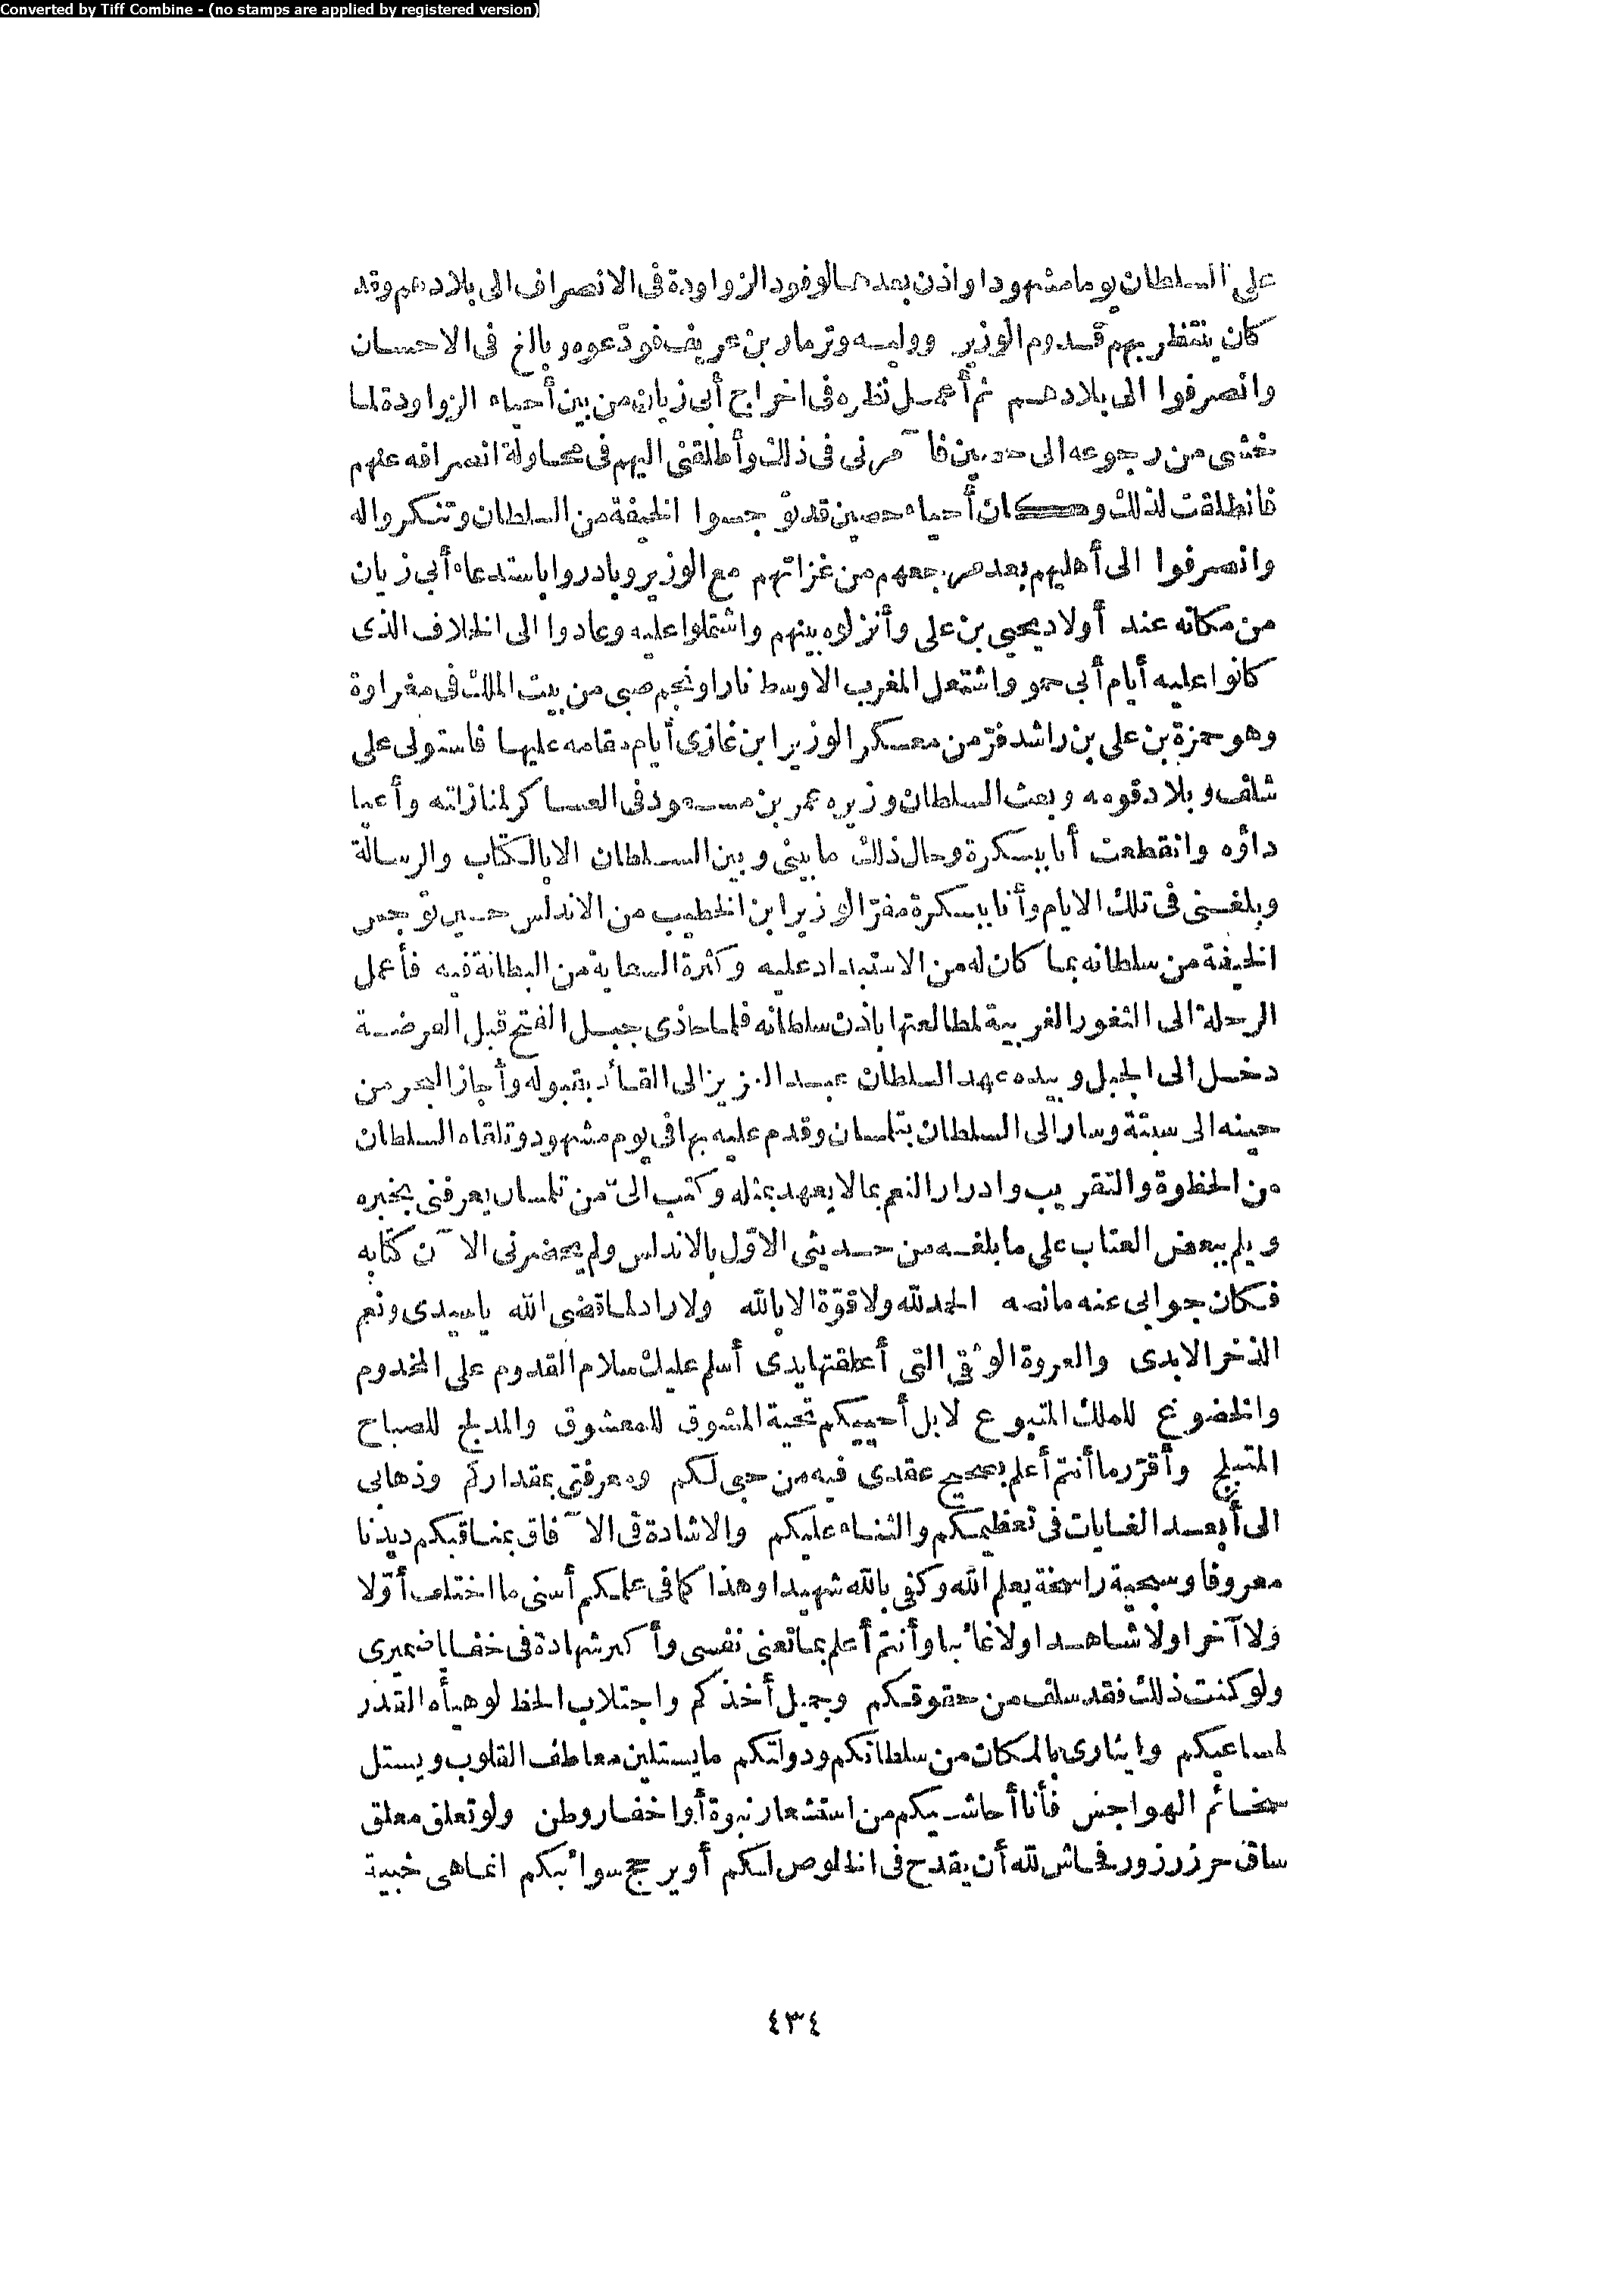 Converted by Tiff Combine - (no stamps are applied by registered version)
على السلطان يوما مشهودا واذن بعدها لوفود الزواودة فى الانصراف الى بلادهم وقد
كان ينتظر بهم قدوم الوزير ووليه وترمار بن عريف فودّعوه وبالغ فى الاحسان
وانصرفوا الى بلادهم ثم أعمل نظره فى اخراج أبى زيان من بين أحياء الزواودة لما
خشى من رجوعه الى حصين فآمرنى فى ذلك وأطلقنى اليهم فى محاولة انصرافه عنهم
فانطلقت لذلك وكان أحياء حصين قد توجسوا الخيفة من السلطان وتنكروا له
وانصرفوا الى أهليهم بعد مرجعهم من غزاتهم مع الوزير وبادروا باستدعاء أبى زيان
من مكانه عند أولاد يحيى بن على وأنزلوه بينهم واشتملوا عليه وعادوا الى الخلاف الذى
كانوا عليه أيام أبى حمو واشتعل المغرب الاوسط نارا ونجم صبى من بيت الملك فى مغراوة
وهو حمزة بن على بن راشد فرّ من معسكر الوزير ابن غازى أيام مقامه عليها فاستولى على
شلف وبلاد قومه وبعث السلطان وزيره عمر بن مسعود فى العساكر لمنازلته وأعيا
داؤه وانقطعت أنا ببسكرة وحال ذلك ما بينى وبين السلطان الا بالكتاب والرسالة
وبلغنى فى تلك الايام وأنا ببسكرة مفرّ الوزير ابن الخطيب من الاندلس حين توجس
الخيفة من سلطانه بما كان له من الاستبداد عليه وكثرة السعاية من البطانة فيه فأعمل
الرحلة الى الثغور الغربية لمطالعتها باذن سلطانه فلما حاذى جبل الفتح قبل الفرضة
دخل الى الجبل وبيده عهد السلطان عبد العزيز الى القائد بقبوله وأجاز البحر من
حينه الى سبتة وسار الى السلطان بتلمسان وقدم عليه بها فى يوم مشهود وتلقاه السلطان
من الحظوة والتقريب وادرار النعم بما لا يعهد بمثله وكتب الىّ من تلمسان يعرفنى بخبره
ويلم ببعض العتاب على ما بلغه من حديثى الاوّل بالاندلس ولم يحضرنى الآن كتابه
فكان جوابى عنه ما نصه الحمد لله ولا قوّة الا بالله ولا راد لما قضى الله يا سيدى ونعم
الذخر الابدى والعروة الوثقى التى أعلقتها يدى أسلم عليك سلام القدوم على المخدوم
والخضوع للملك المتبوع لا بل أحييكم تحية المشوق للمعشوق والمدلج للصباح
المتبلج وأقرّر ما أنتم أعلم بصحيح عقدى فيه من حبى لكم ومعرفتى بمقداركم وذهابى
الى أبعد الغايات فى تعظيمكم والثناء عليكم والاشادة فى الآفاق بمناقبكم ديدنا
معروفا وسجية راسخة يعلم الله وكفى بالله شهيدا وهذا كما فى علمكم أسنى ما اختلف أوّلا
ولا آخرا ولا شاهدا ولا غائبا وأنتم أعلم بما تعنى نفسى وأكبر شهادة فى خفايا ضميرى
ولو كنت ذلك فقد سلف من حقوقكم وجميل أخذكم واجتلاب الحظ لو هيأه القدر
لمساعيكم وايثارى بالمكان من سلطانكم ودولتكم ما يستلين معاطف القلوب ويستل
سخائم الهواجس فأنا أحاشيكم من استشعار نبوة أو اخفار وطن ولو تعلق معلق
ساق حر زرزور فحاش لله أن يقدح فى الخلوص لكم أو يرجح سوائبكم انما هى خبية
٤٣٤